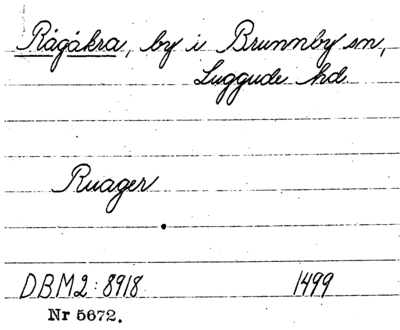 Rågåkra, by i Brunnby sn,
Luggude hd.
Ruager
DBM2:8918 1499
Nr 5672.